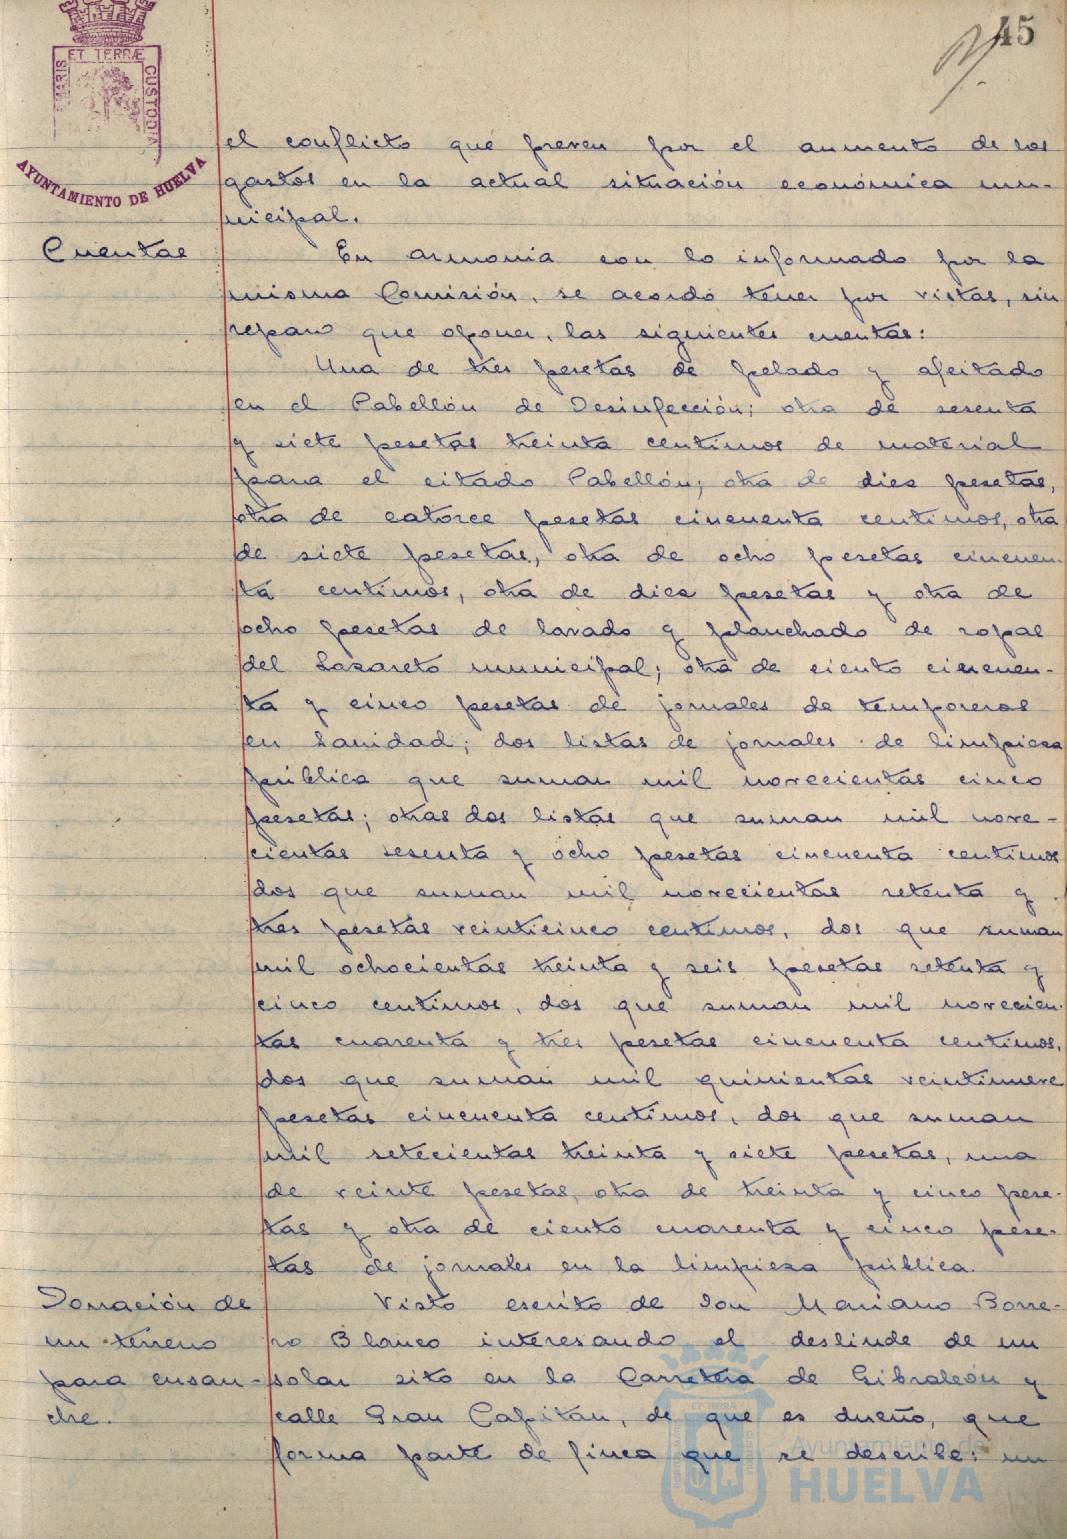 45
ET TERRÆ
MARIS
CUSTODIA
AYUNTAMIENTO DE HUELVA
el conflicto que preven por el aumento de los
gastos en la actual situación económica mu-
nicipal.
Cuentas
En armonia con lo informado por la
misma Comisión, se acordó tener por vistas, sin
reparo que oponer, las siguientes cuentas:
Una de tres pesetas de pelado y afeitado
en el Pabellón de Desinfección; otra de sesenta
y siete pesetas treinta centimos de material
para el citado Pabellón; otra de diez pesetas,
otra de catorce pesetas cincuenta centimos, otra
de siete pesetas, otra de ocho pesetas cincuen-
ta centimos, otra de diez pesetas y otra de
ocho pesetas de lavado y planchado de ropas
del Lazareto municipal; otra de ciento cincuen-
ta y cinco pesetas de jornales de temporeros
en Sanidad; dos listas de jornales de limpieza
pública que suman mil novecientas cinco
pesetas; otras dos listas que suman mil nove-
cientas sesenta y ocho pesetas cincuenta centimos
dos que suman mil novecientas setenta y
tres pesetas veinticinco centimos, dos que suman
mil ochocientas treinta y seis pesetas setenta y
cinco centimos, dos que suman mil novecien-
tas cuarenta y tres pesetas cincuenta centimos,
dos que suman mil quinientas veintinueve
pesetas cincuenta centimos, dos que suman
mil setecientas treinta y siete pesetas, una
de veinte pesetas, otra de treinta y cinco pese-
tas y otra de ciento cuarenta y cinco pese-
tas de jornales en la limpieza pública.
Donación de
un terreno
para ensan-
che.
Visto escrito de Don Mariano Borre-
ro Blanco interesando el deslinde de un
solar sito en la Carretera de Gibraleón y
calle Gran Capitán, de que es dueño, que
forma parte de finca que se describe: un
Ayuntamiento de
HUELVA